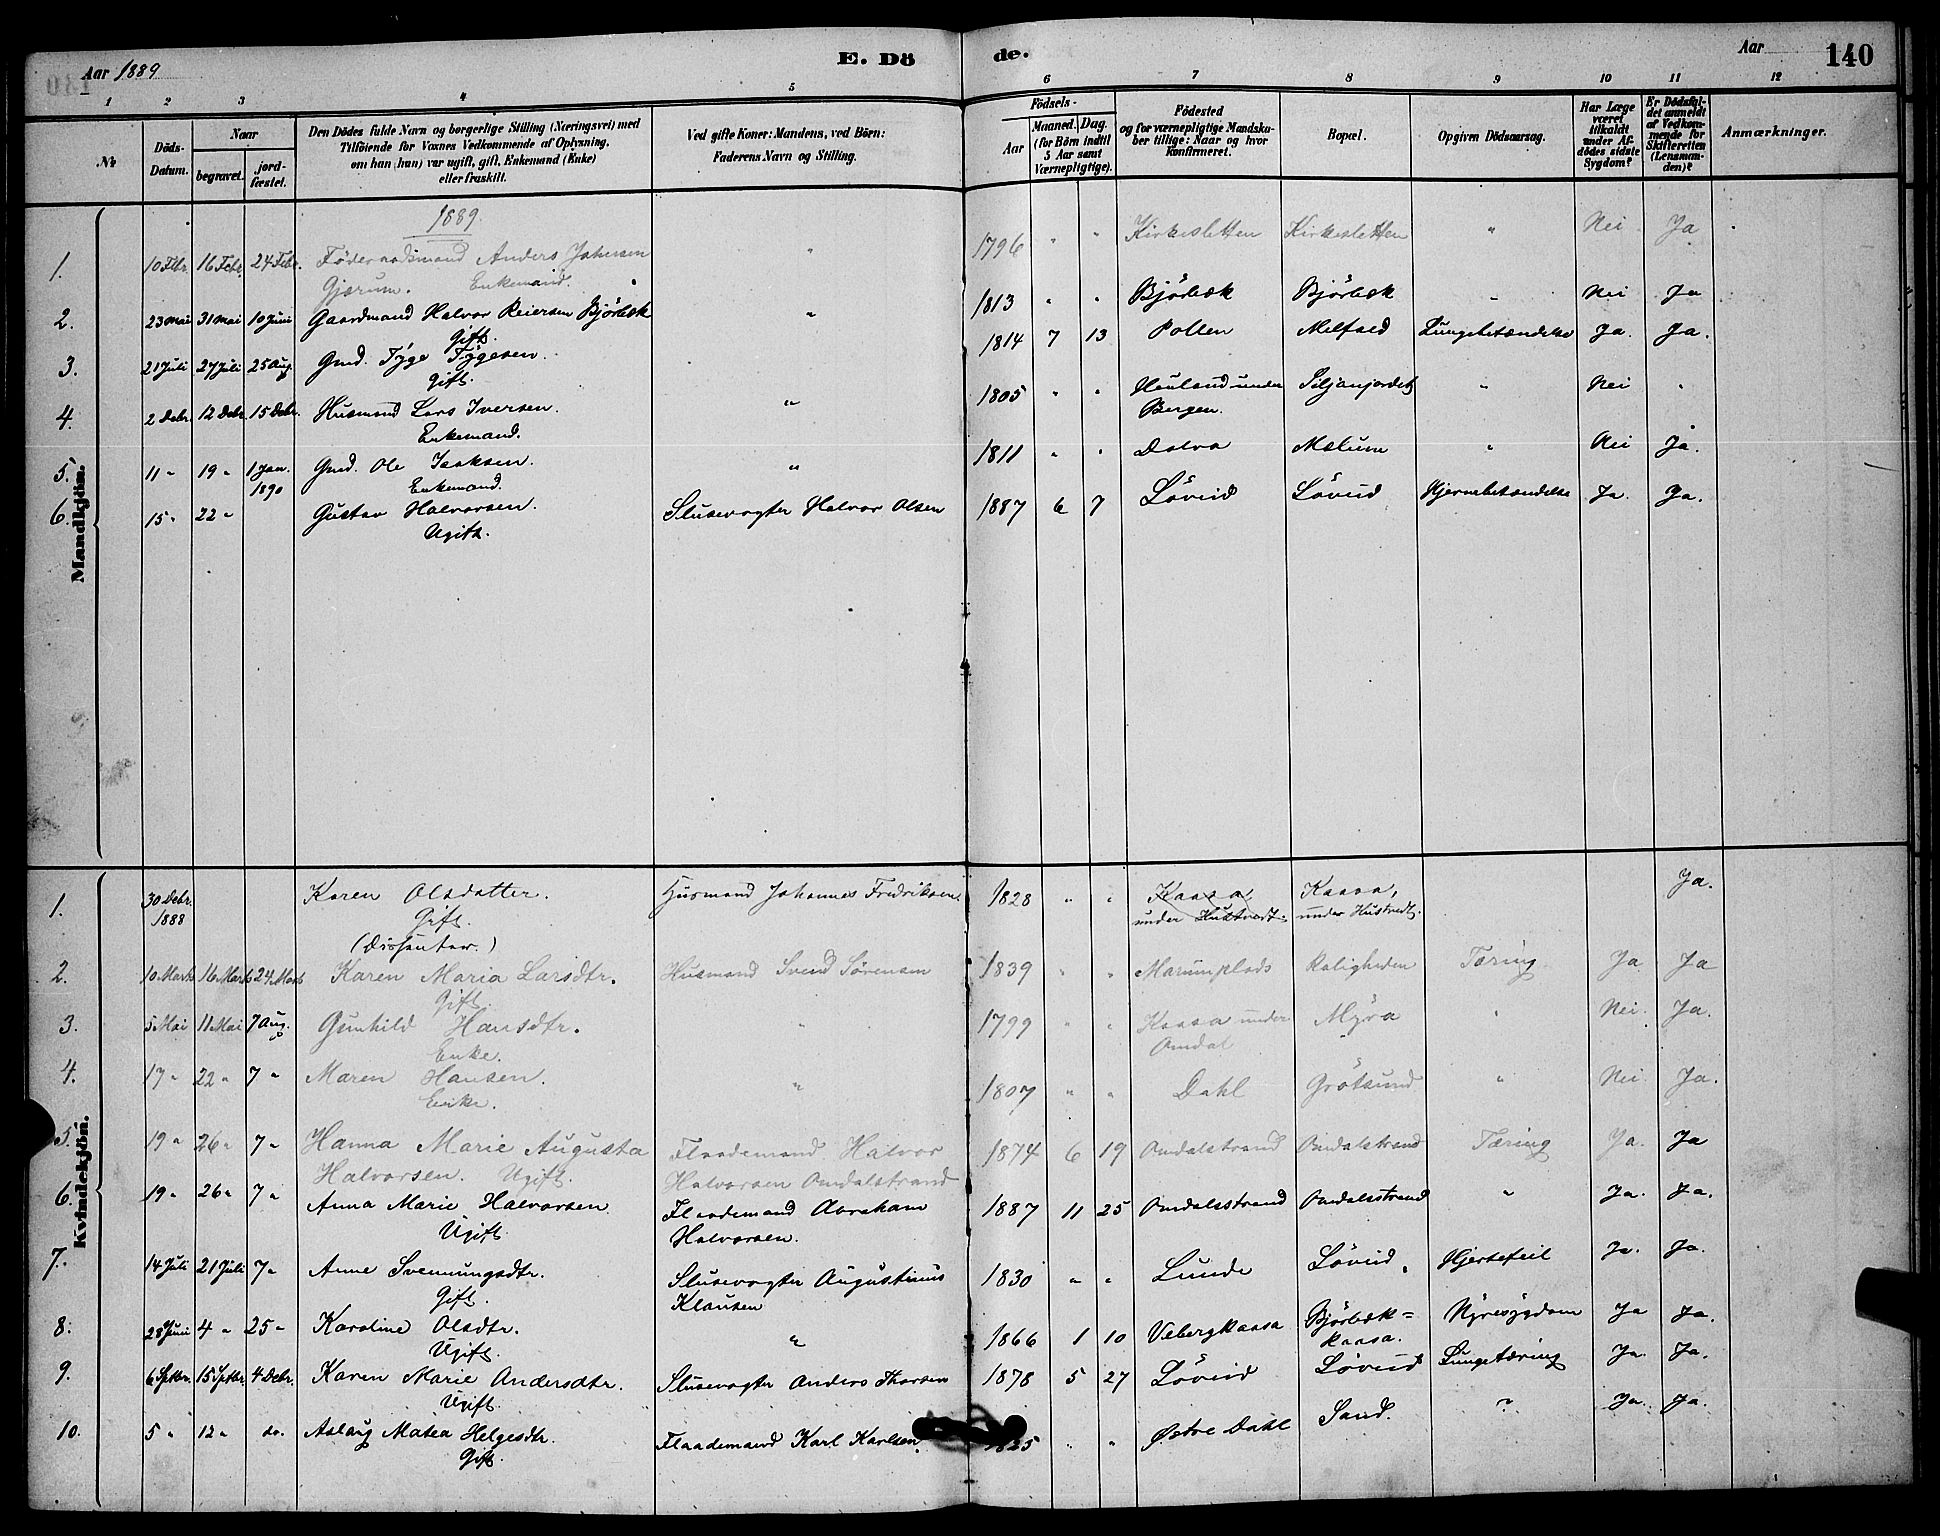 Aar 1889
E. Döde.
Aar
140
1 2 3 4 5 6 7 8 9 10 11 12
№
Döds-Datum.
Naar
begravet.
jordfæstet.
Den Dödes fulde Navn og borgerlige Stilling (Næringsvei) med
Tilföiende for Voxnes Vedkommende af Oplysning,
om han (hun) var ugift, gift, Enkemand (Enke)
eller fraskilt.
Ved gifte Koner: Mandens, ved Börn:
Faderens Navn og Stilling.
Födsels-
Aar
Maaned. Dag.
(for Börn indtil
5 Aar samt
Værnepligtige).
Födested
og for værnepligtige Mandskaber tillige: Naar og hvor
Konfirmeret.
Bopæl.
Opgiven Dödsaarsag.
Har Læge
været
tilkaldt
under Afdödes sidste
Sygdom?
Er Dödsfaldet anmeldt
af Vedkommende for
Skifteretten
(Lensmanden)?
Anmærkninger.
Mandkjön.
1889.
1. 10 Febr. 16 Febr. 24 Febr. Föderaadsmand Anders Johnsen " 1796 " " Kirkesletten Kirkesletten " Nei Ja
Gjærum. Enkemand.
2. 23 Mai 31 Mai 10 Juni Gaardmand Halvor Reiersen Bjørbæk " 1813 " " Bjørbæk Bjørbæk " Nei Ja
Gift.
3. 21 Juli 27 Juli 25 Aug. Gmd. Tyge Tygesen. 1814 7 13 Pollen Melfald Lungebetændelse Ja. Ja.
Gift.
4. 2 Debr. 12 Debr. 15 Debr. Husmand Lars Iversen. " 1805 " " Hauland under Siljanjordet " Nei "
Enkemand. Bergen.
5. 11 " 19 " 1 Jan. Gmd. Ole Isaksen. " 1811 " " Dolva Mælum " Nei Ja.
1890 Enkemand.
6. 15 " 22 " Gustav Halvorsen. Slusevogter Halvor Olsen 1887 6 7 Løveid Løveid Hjernebetændelse Ja. Ja.
Ugift.
Kvindekjön.
1. 30 Debr. Karen Olsdatter. Husmand Johannes Fredriksen. 1828 " " Kaasa Kaasa, Ja.
1888 Gift. under Hustvedt. under Hustvedt.
(Dissenter.)
2. 10 Marts 16 Marts 24 Marts Karen Maria Larsdtr. Husmand Svend Sørensen 1839 " " Marumplads Roligheden Tæring Ja Ja
Gift.
3. 5 Mai 11 Mai 7 Aug. Gunhild Hansdtr. " 1799 " " Kaasa under Myra " Nei. Ja.
Enke. Omdal
4. 17 " 22 " 7 " Maren Hansen. " 1807 " " Dahl Grøtsund " Nei Ja.
Enke.
5. 19 " 26 " 7 " Hanna Marie Augusta Flaademand Halvor 1874 6 19 Omdalstrand Omdalstrand Tæring Ja. Ja
Halvorsen. Ugift. Halvorsen Omdalstrand
6. 19 " 26 " 7 " Anna Marie Halvorsen Flaademand Abraham 1887 11 25 Omdalsstrand Omdalsstrand " Ja. Ja.
Ugift. Halvorsen.
7. 14 Juli 21 Juli 7 " Anne Svennungsdtr. Slusevogter Augustinus 1830 " " Lunde Løveid. Hjertefeil Ja. Ja.
Gift. Klausen
8. 28 Juni 4 " 25 " Karoline Olsdtr. " 1866 1 10 Vebergkaasa Bjørbæk= Nyresygdom Ja Ja.
Ugift. kaasa.
9. 6 Septbr. 15 Septbr. 4 Debr. Karen Marie Andersdtr. Slusevogter Anders Thorsen 1878 5 27 Løveid Løveid Lungetæring Ja. Ja.
Ugift.
10. 5 " 12 " do. Aslaug Matea Helgesdtr. Flaademand Karl Karlsen 1825 " " Østre Dahl Sand. " Ja. Ja.
Gift.